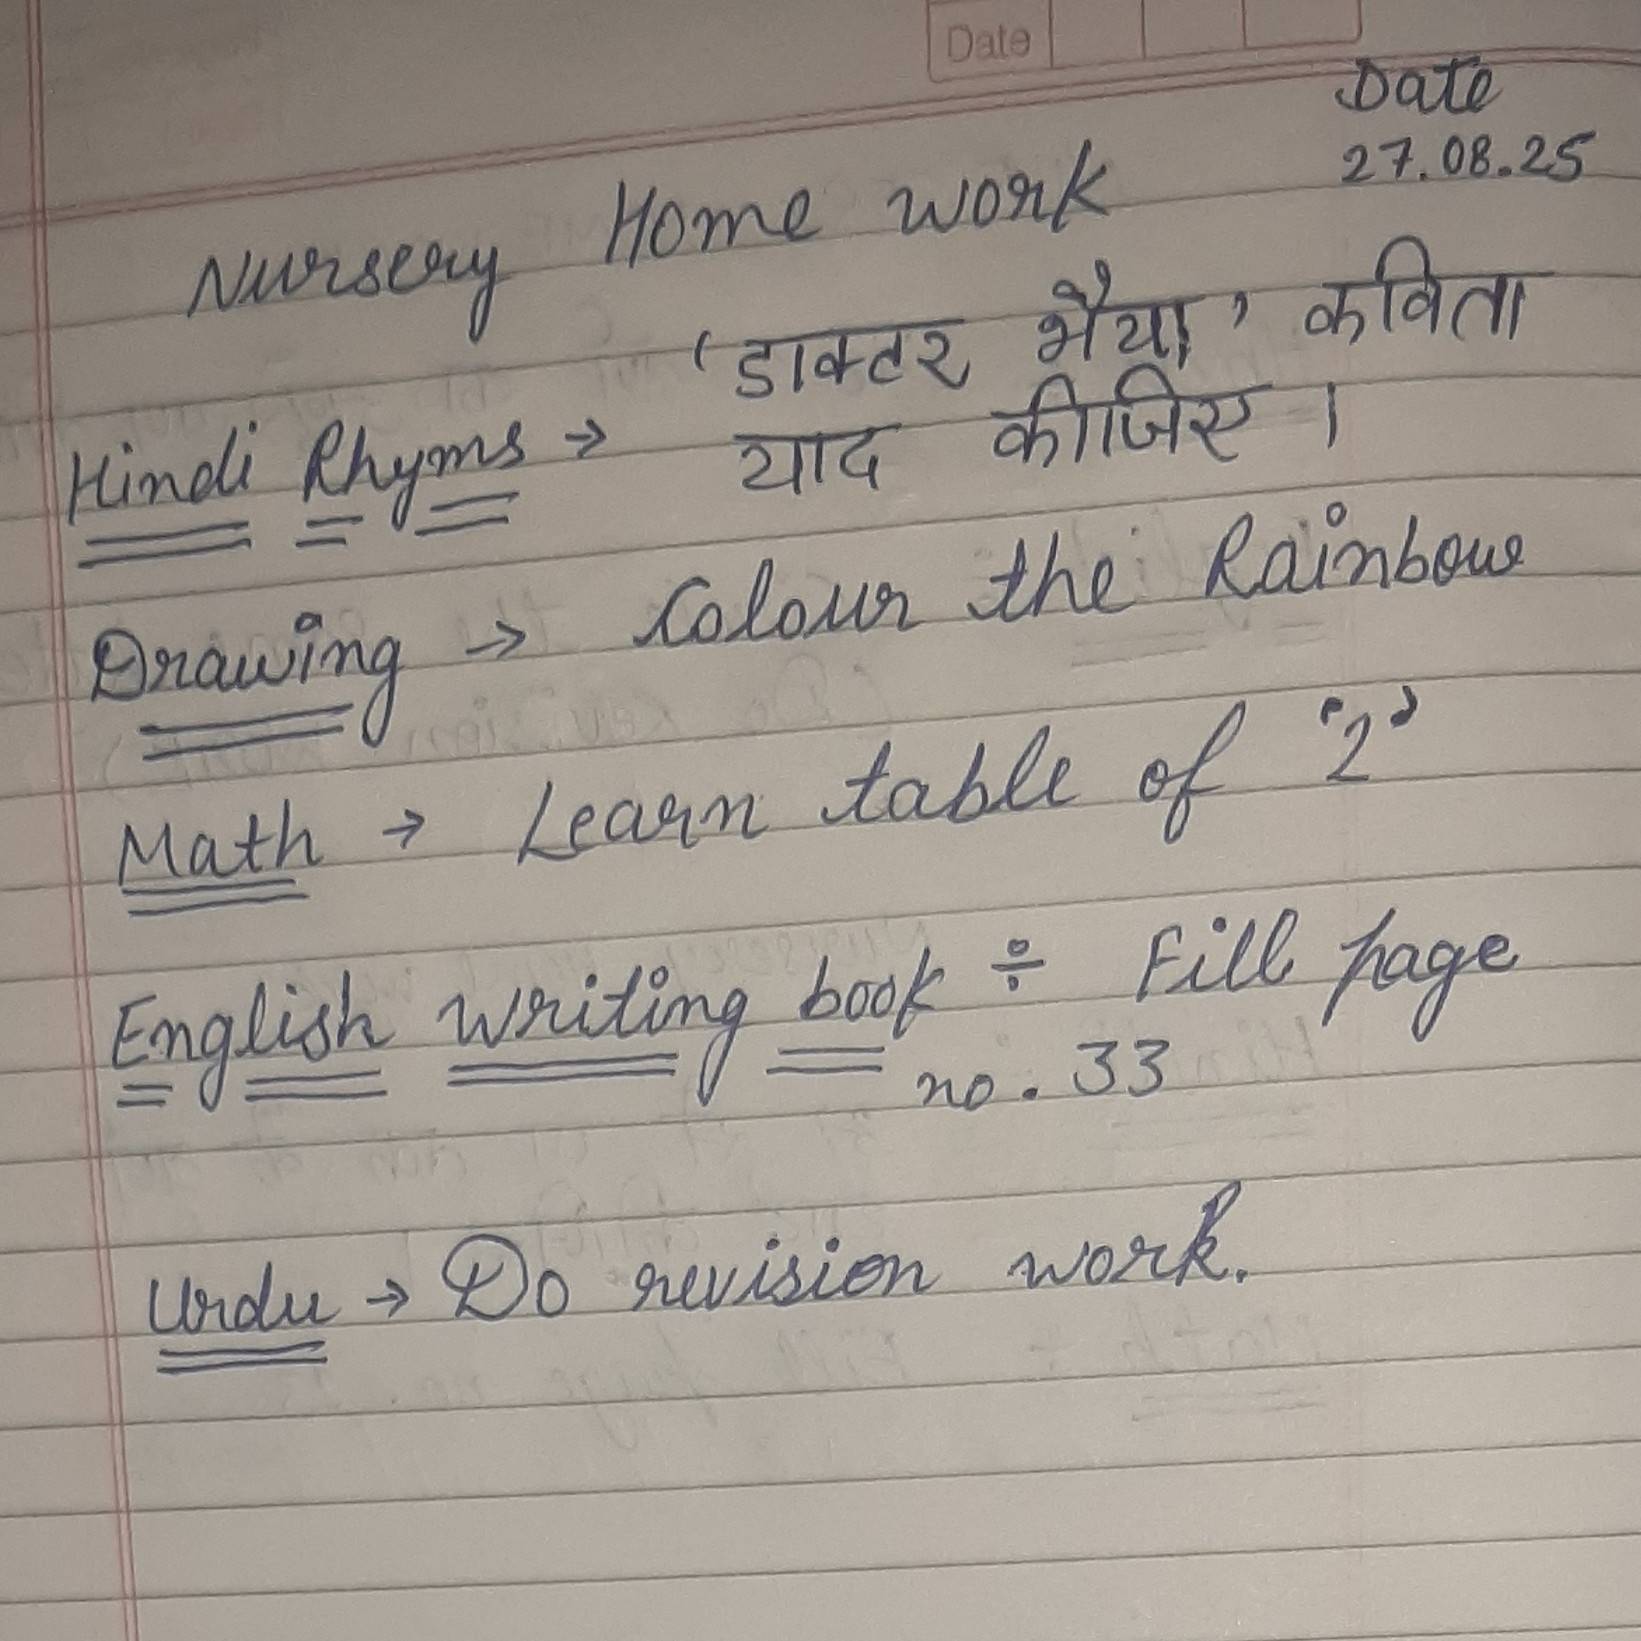 Date
Date
27.08.25
Nursery Home work
Hindi Rhyms → 'डाक्टर भैया' कविता
याद कीजिए ।
Drawing → Colour the Rainbow
Math → Learn table of '2'
English writing book ÷ Fill page
no. 33
Urdu → Do revision work.